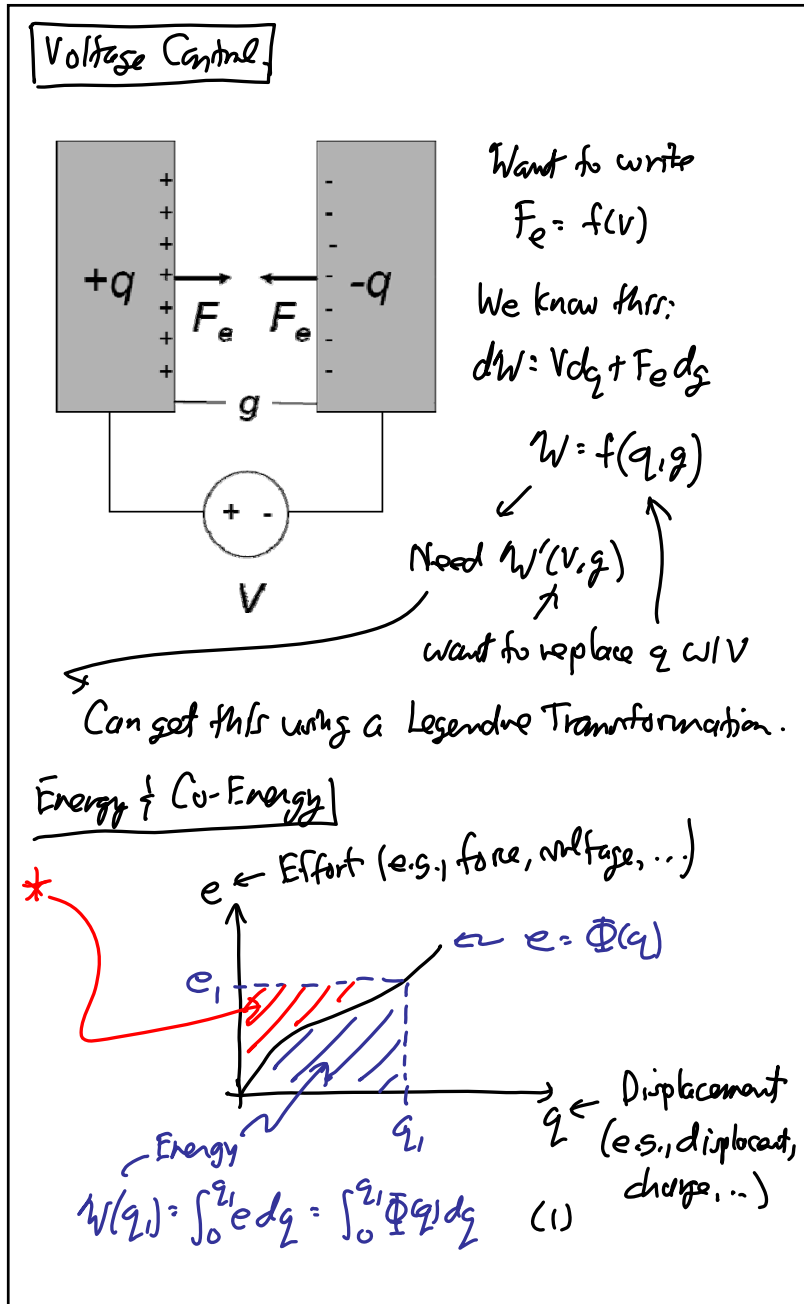 Voltage Control
Want to write
F_e = f(v)
We know this:
dW = Vdq + F_e dg
W = f(q,g)
Need W'(V,g)
want to replace q w/ V
+ + + + + + +
- - - - - - -
+q
-q
F_e F_e
g
+ -
V
Can get this using a Legendre Transformation.
Energy & Co-Energy
*
e ← Effort (e.g., force, voltage, ...)
e = Φ(q)
e₁
q₁
q ← Displacement
(e.g., displacemt,
charge, ...)
Energy
W(q₁) = ∫₀^q₁ e dq = ∫₀^q₁ Φ(q) dq (1)